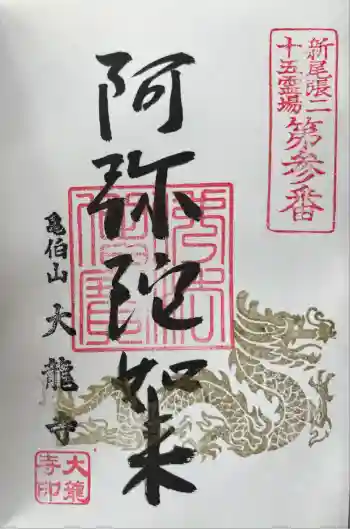 新尾張二
十五霊場
第参番
阿弥陀如来
亀伯山
大龍寺
大龍
寺印